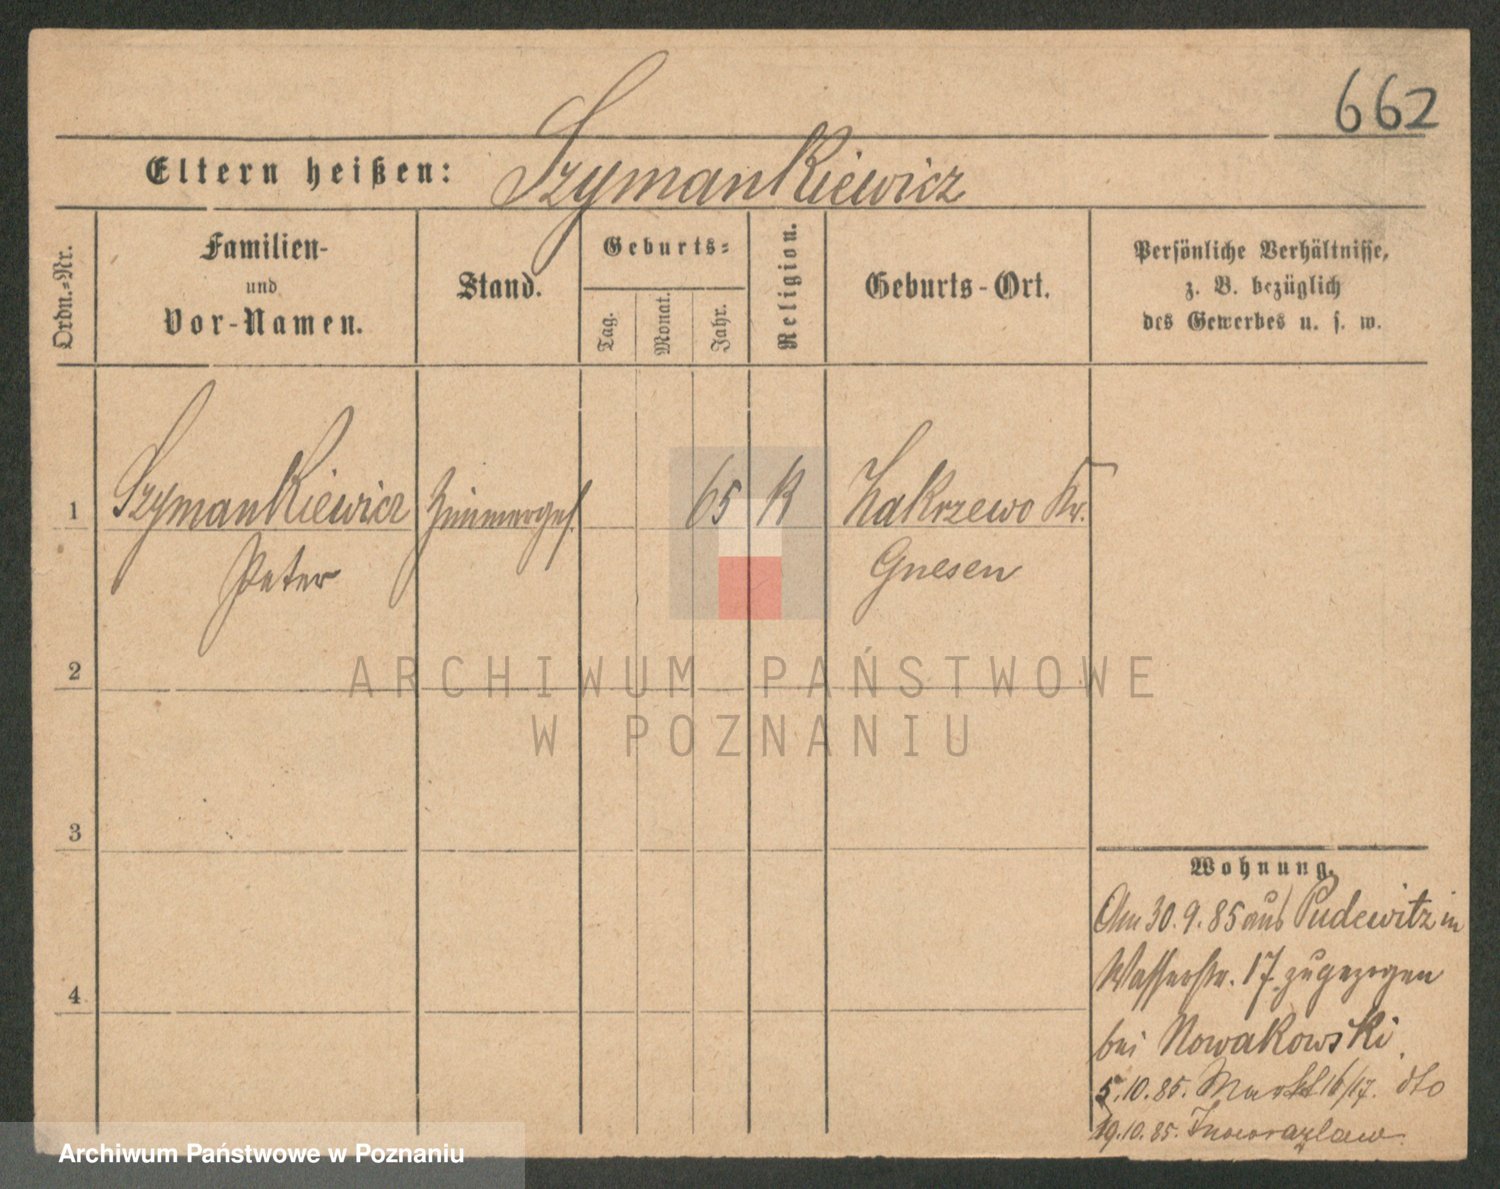 662
Eltern heißen: Szymankiewicz
Ordn.=Nr.
Familien-
und
Vor-Namen.
Stand.
Geburts=
Tag.
Monat.
Jahr.
Religion.
Geburts-Ort.
Persönliche Verhältnisse,
z. B. bezüglich
des Gewerbes u. s. w.
1 Szymankiewicz Zimmerges. 65 K Zakrzewo Kr.
Peter Gnesen
2
3
4
Wohnung.
Am 30.9.85 aus Pudewitz in
Wasserstr. 17 zugezogen
bei Nowakowski.
5.10.85. Markt 16/17. dto
19.10.85. Inowrazlaw.
ARCHIWUM PAŃSTWOWE
W POZNANIU
Archiwum Państwowe w Poznaniu